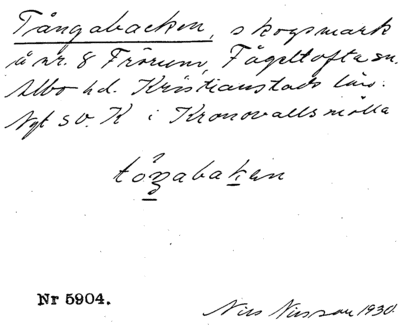 Tångabacken, skogsmark
å nr. 8 Frörum, Fågeltofta sn.
Albo hd. Kristianstads län.
Ngt SV. K i Kronovallsmölla
tåŋabakən
Nr 5904.
Nils Nilsson 1930.